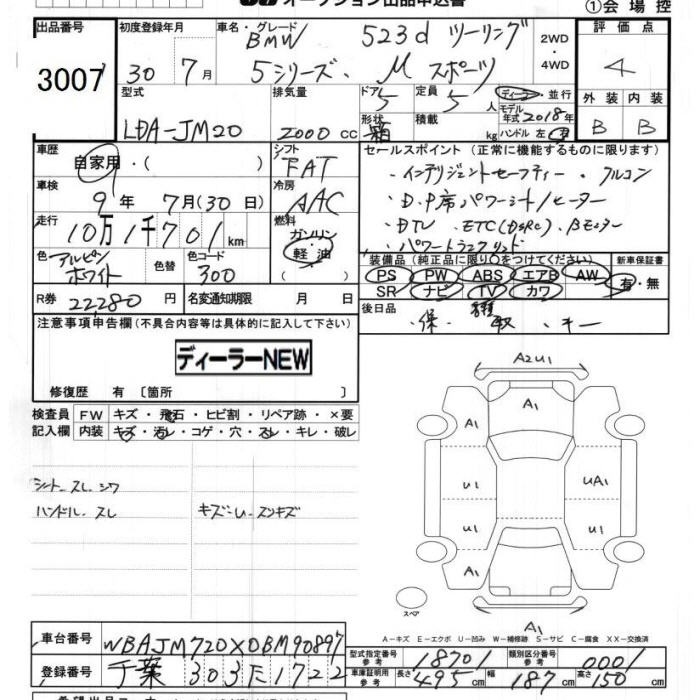 オークション出品申込書
①会場控
出品番号
3007
初度登録年月
30年 7月
車名・グレード
BMW 523d ツーリング
5シリーズ. Mスポーツ
2WD・4WD
評価点
4
外装 内装
B B
型式
LDA-JM20
排気量
2000cc
ドア
5
定員
5人
ディーラー・並行
形状
箱
積載
kg
モデル年式 2018年
ハンドル 左・右
車歴
自家用・( )
シフト
FAT
車検
9年 7月(30日)
冷房
AAC
走行
10万1千701km
燃料
ガソリン
軽油
( )
色
アルピンホワイト
色替
色コード
300
R券
22,280円
名変通知期限 月 日
セールスポイント(正常に機能するものに限ります)
・インテリジェントセーフティー・クルコン
・D.P席パワーシート/ヒーター
・DTV. ETC(DSRC). Bモニター
・パワートランクリッド
装備品(純正品に限り○をつけてください)
新車保証書
PS PW ABS エアB AW
SR ナビ TV カワ
有・無
後日品
・保・取・キー
注意事項申告欄(不具合内容等は具体的に記入して下さい)
ディーラーNEW
修復歴 有〔箇所 〕
検査員記入欄
FW キズ・飛石・ヒビ割・リペア跡・×要
内装 キズ・汚レ・コゲ・穴・スレ・キレ・破レ
シート スレ. シワ
ハンドル. スレ
キズ・U・スンキズ
A2U1
A1
A1
A1
U1
UA1
U1
U1
A1
A1
A1
スペア
A-キズ E-エクボ U-凹み W-補修跡 S-サビ C-腐食 XX-交換済
車台番号
WBAJM720X0BM90897
登録番号
千葉 303 た 1722
型式指定番号 参考
18701
類別区分番号 参考
0001
車庫証明用 参考
長さ 495cm 幅 187cm 高さ 150cm